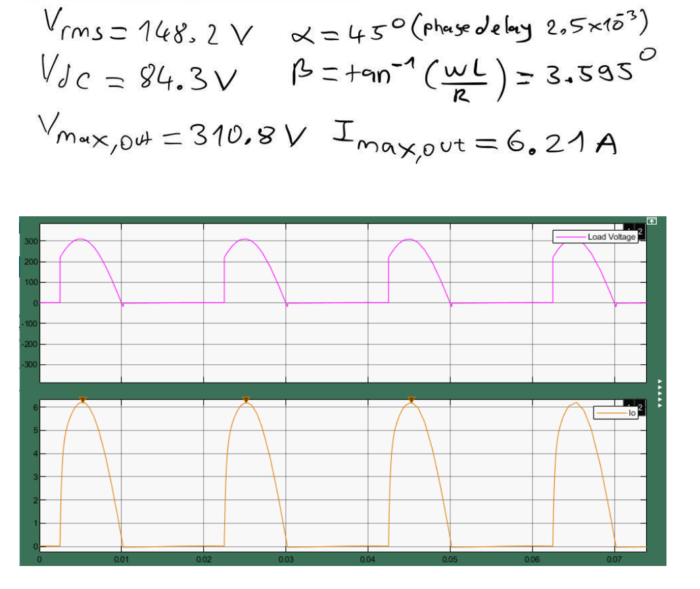 Vrms = 148.2 V α = 45° (phase delay 2.5x10⁻³)
Vdc = 84.3 V β = tan⁻¹ (WL/R) = 3.595°
Vmax,out = 310.8 V Imax,out = 6.21 A
Load Voltage
300
200
100
0
-100
-200
-300
Io
6
5
4
3
2
1
0
0 0.01 0.02 0.03 0.04 0.05 0.06 0.07